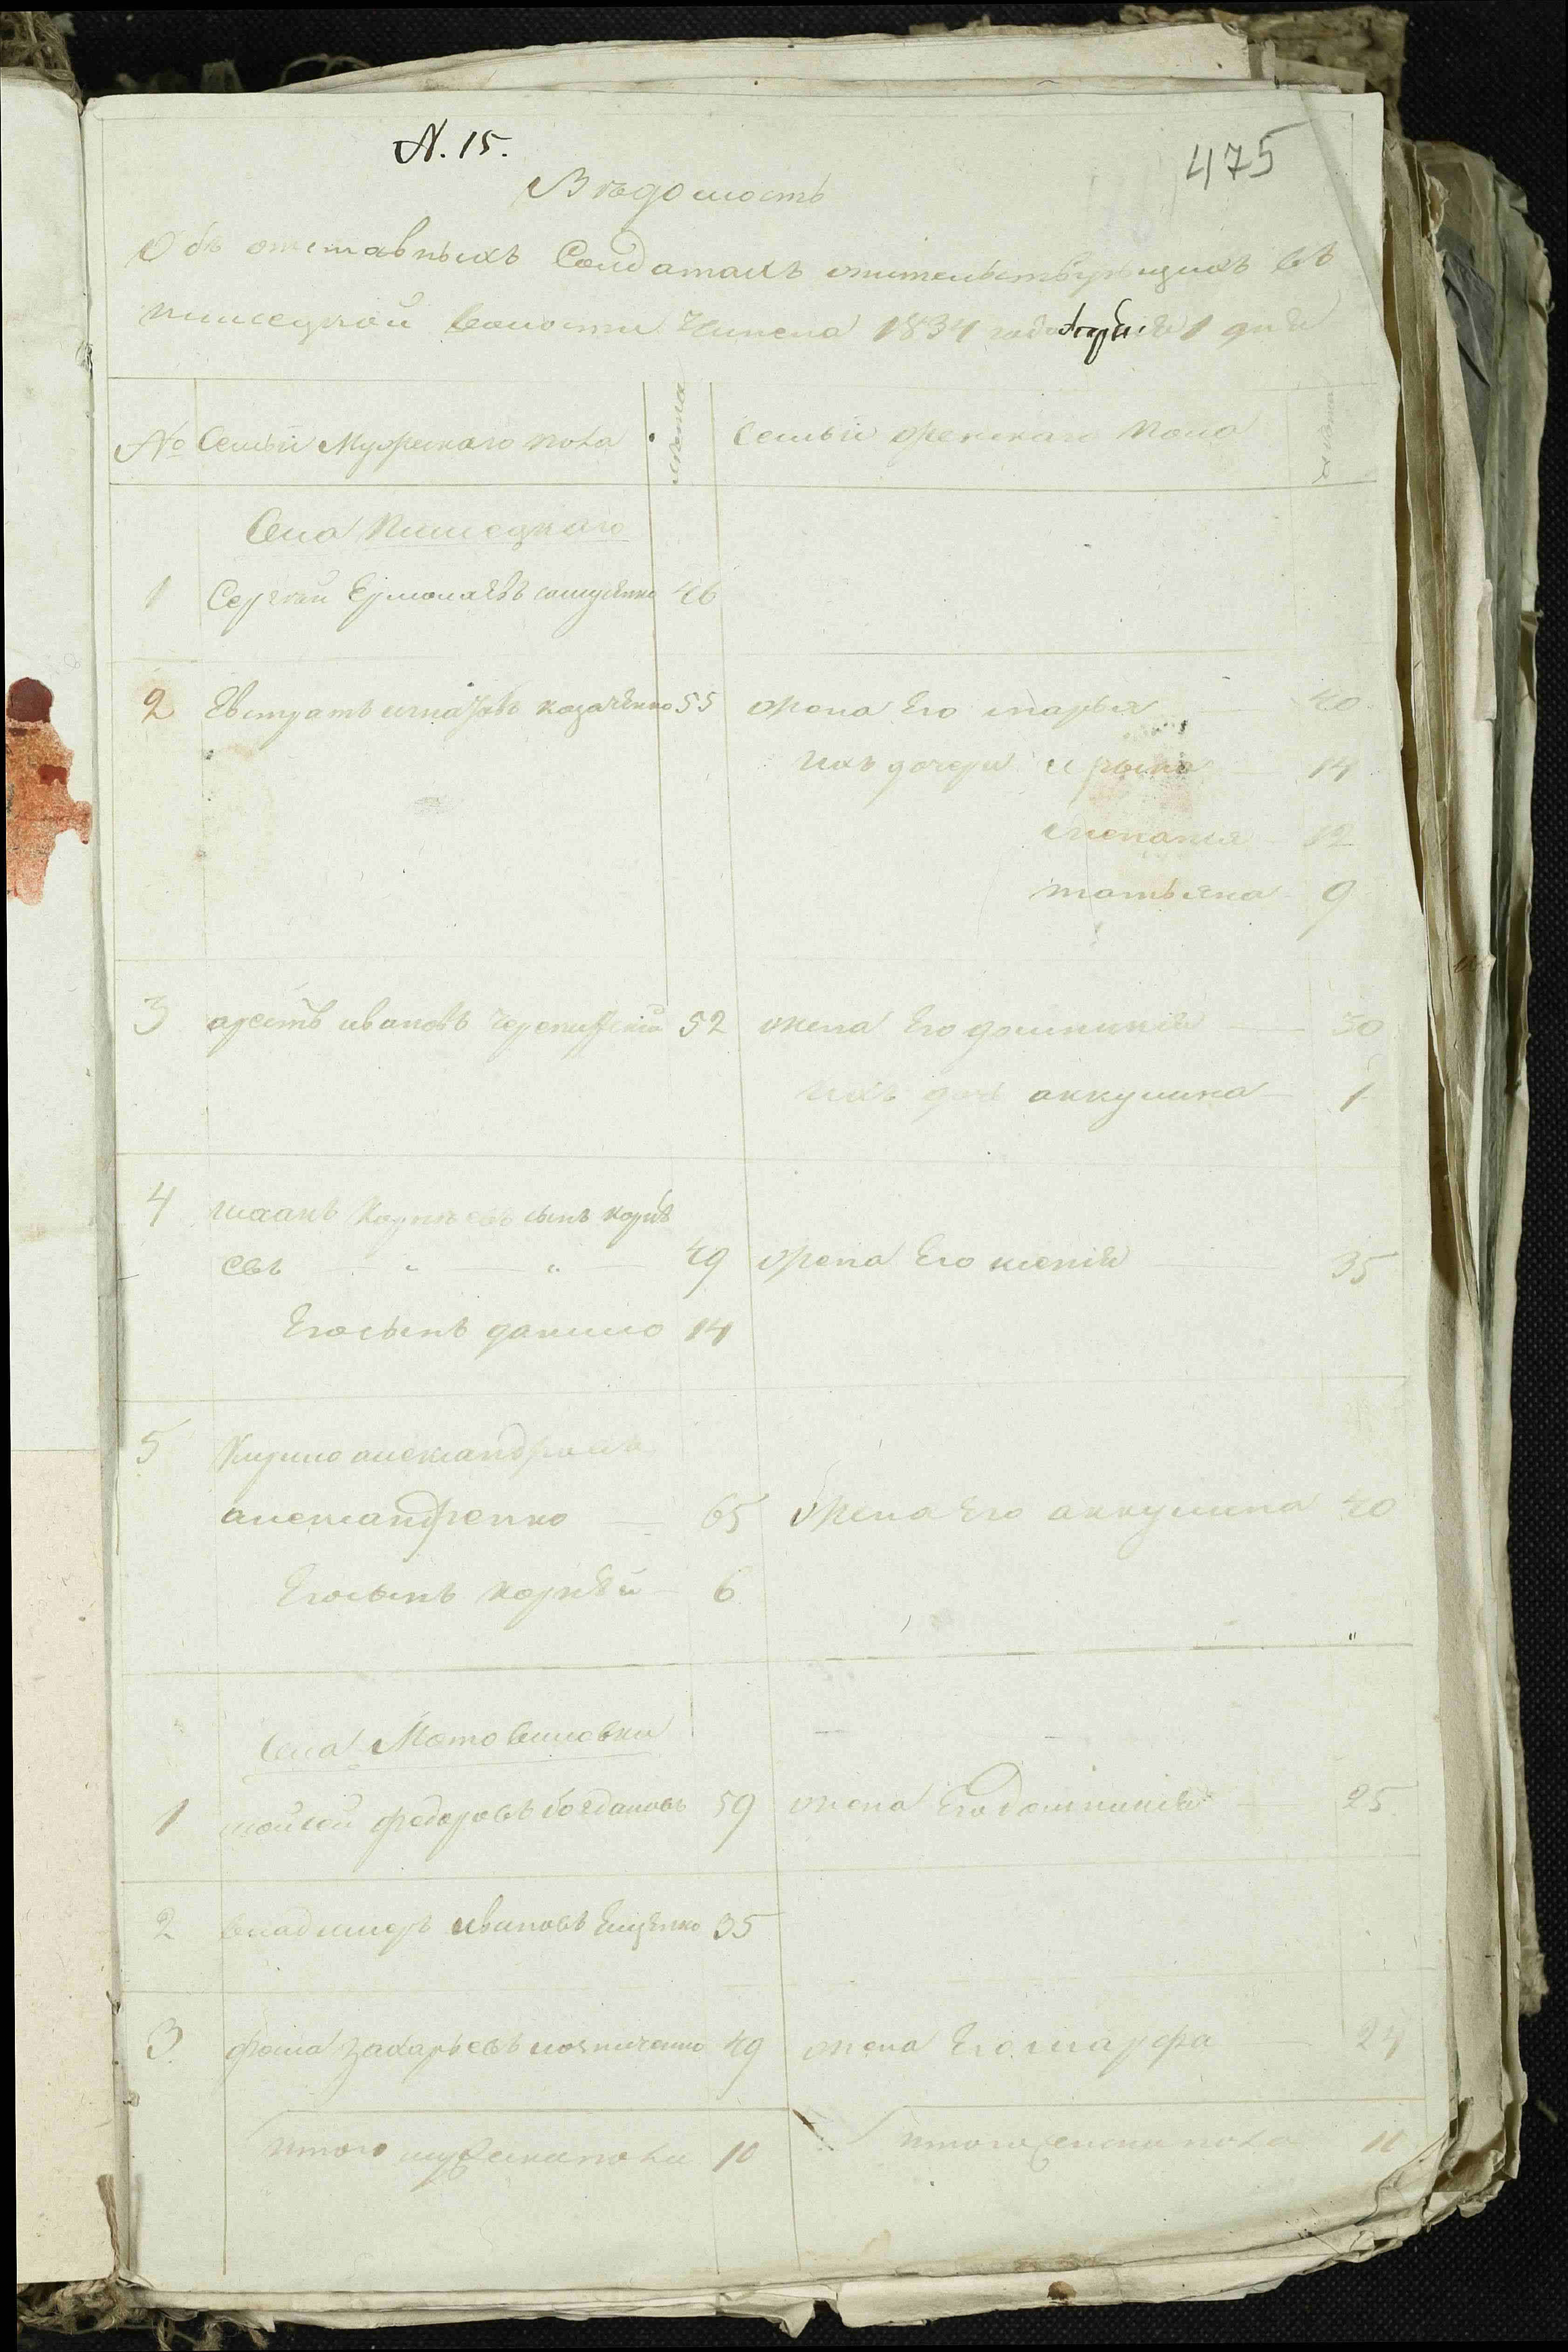 N. 15.
475
Вѣдомость
Объ отставныхъ Солдатахъ жительствующихъ въ
волости Чинена 1834 года Апрѣля 1 дня
№ Семьи Мужескаго пола
лѣта
Семьи женскаго пола
лѣта
Села
1 Сергѣй Ермолаевъ 46
2 Евстратъ Игнатовъ казаченко 55 жена Его марья 40
ихъ дочери ирына 14
12
татьяна 9
3 ивановъ 52 жена Его домникия 30
ихъ дочь аккулина 1
4 Корнѣевъ сынъ корнѣ
евъ 49 жена Его ксенія 35
Его сынъ данило 14
5 Кирило александровъ
александренко 65 жена Его аккулина 40
Его сынъ корнѣй 6
Села Мотовиловки
1 мойсей федоровъ богдановъ 59 жена Его домникия 25
2 владимеръ ивановъ Ещенко 35
3 фома захарьевъ 49 жена Его марфа 24
итого мужеска пола 10
итого женска пола 11